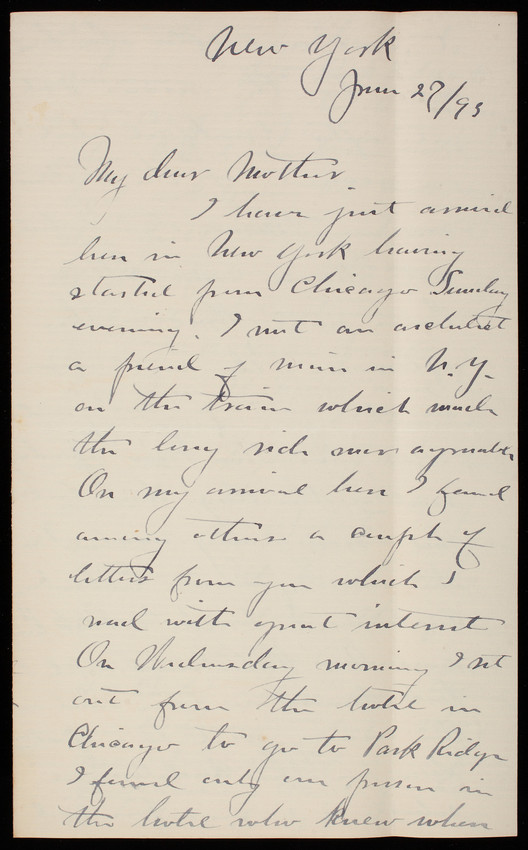 New York
June 27/93
My dear Mother
I have just arrived
here in New York having
started from Chicago Sunday
evening. I met an architect
a friend of mine in N.Y.
on the train which made
the long ride more agreeable
On my arrival here I found
among others a couple of
letters from you which I
read with great interest
On Wednesday morning I set
out from the hotel in
Chicago to go to Park Ridge
I found only one person in
the hotel who knew where